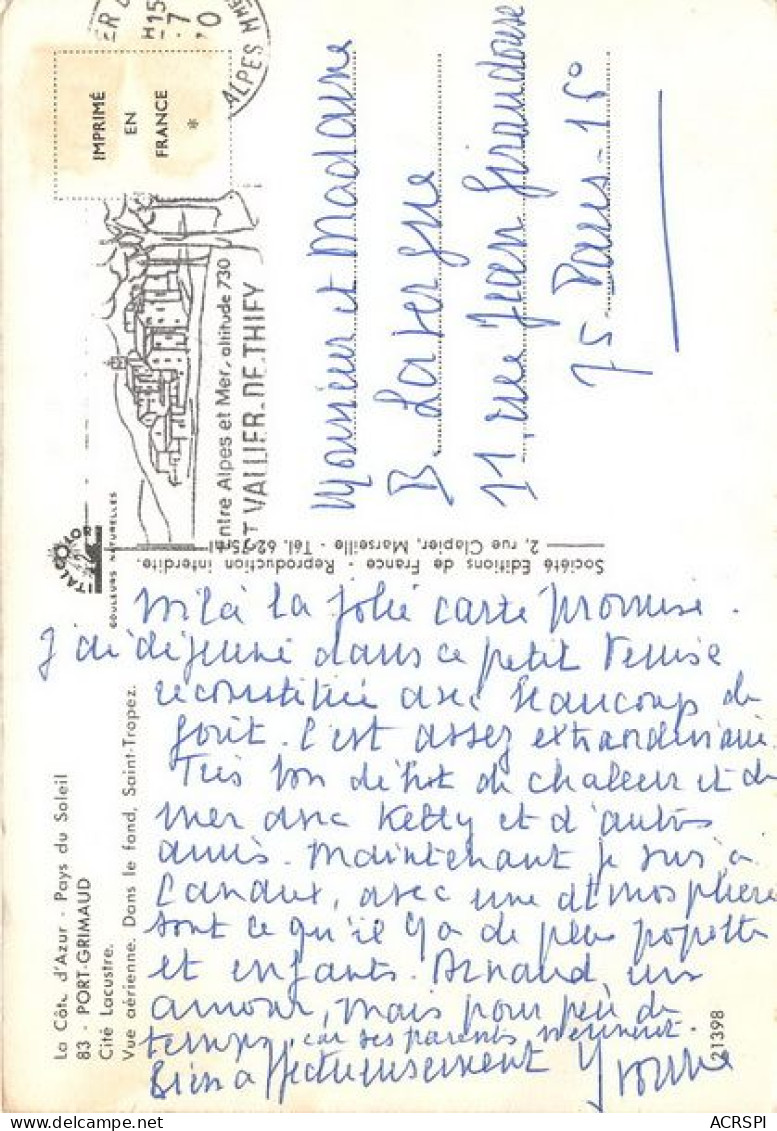 La Côte d'Azur - Pays du Soleil
83 - PORT-GRIMAUD
Cité Lacustre.
Vue aérienne. Dans le fond, Saint-Tropez.
COULEURS NATURELLES
IMPRIMÉ
EN
FRANCE
*
H15
ALPES MMES
ntre Alpes et Mer, altitude 730
ST VALLIER-DE-THIEY
Société Editions de France - Reproduction interdite.
2, rue Clapier, Marseille - Tél. 62-75
Monsieur et Madame
B. Lavergne
11, rue Jean Giraudoux
75 - Paris - 15°
Voilà la jolie carte promise.
J'ai déjeuné dans ce petit Venise
reconstituée avec beaucoup de
goût. C'est assez extraordinaire.
Très bon début de chaleur et de
mer avec Ketty et d'autres
amis. Maintenant je suis à
Canaux, avec une atmosphère
tout ce qu'il y a de plus popotte
et enfants. Arnaud, un
amour, mais pour peu de
temps, car ses parents viennent.
Bien affectueusement Yvonne
21398
ACRSPI